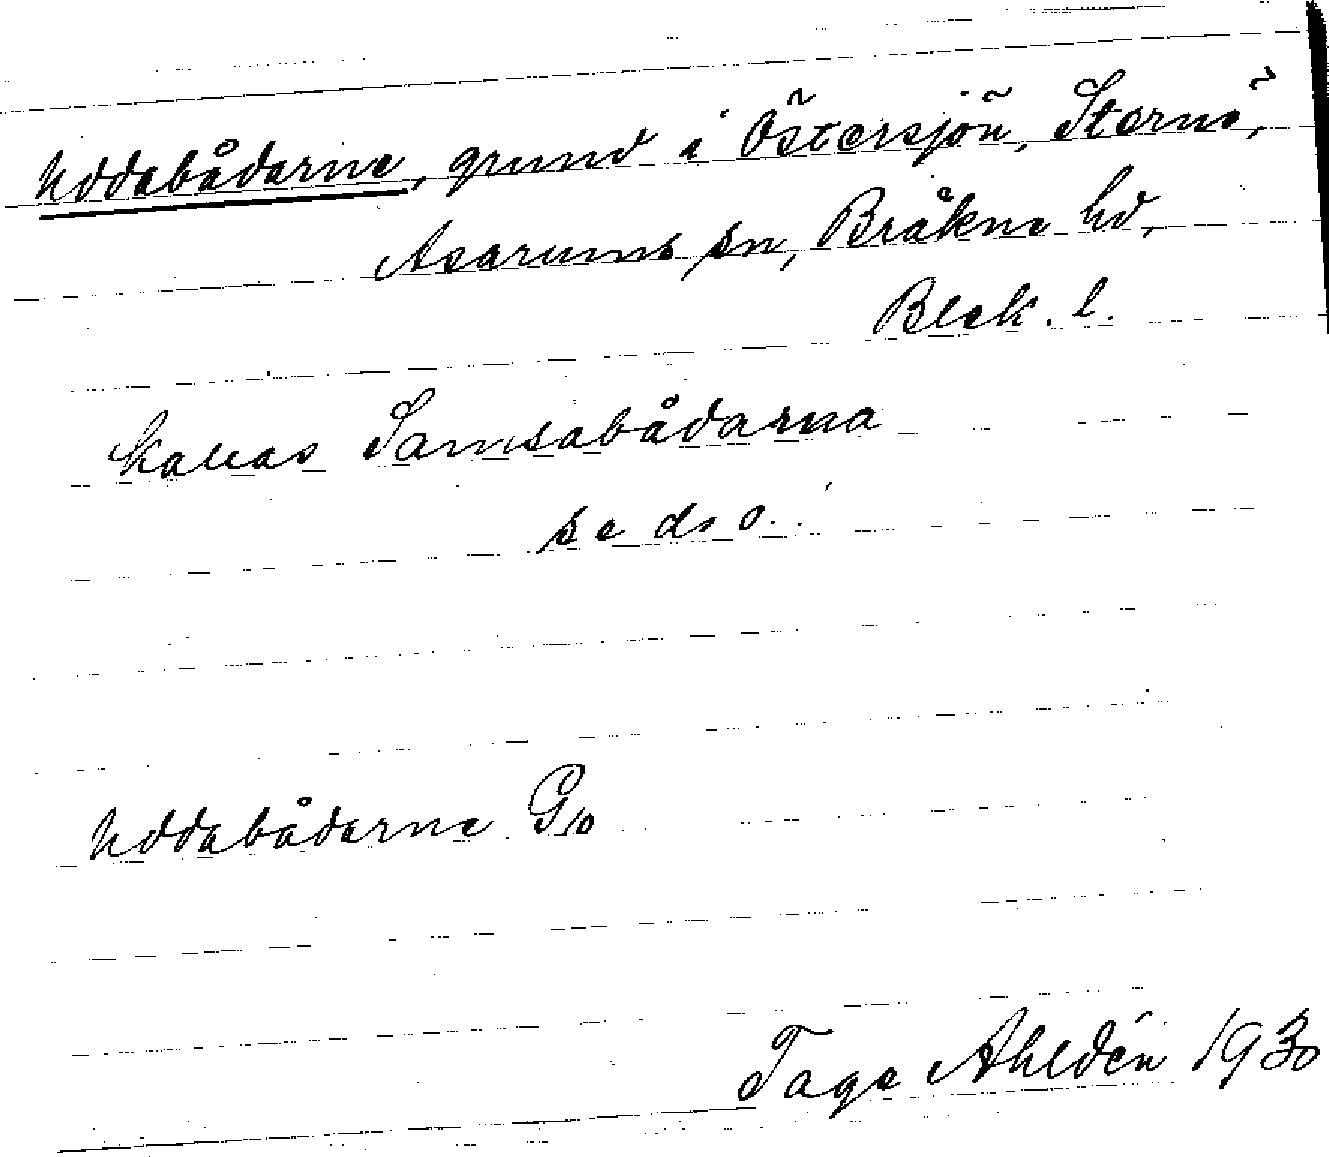 Uddabådarne, grund i Östersjön, Sternö,
Asarums sn, Bräkne hd,
Blek. l.
kallas Samsabådarna
se d. o.
Uddabådarne G 10
Tage Ahldén 1930